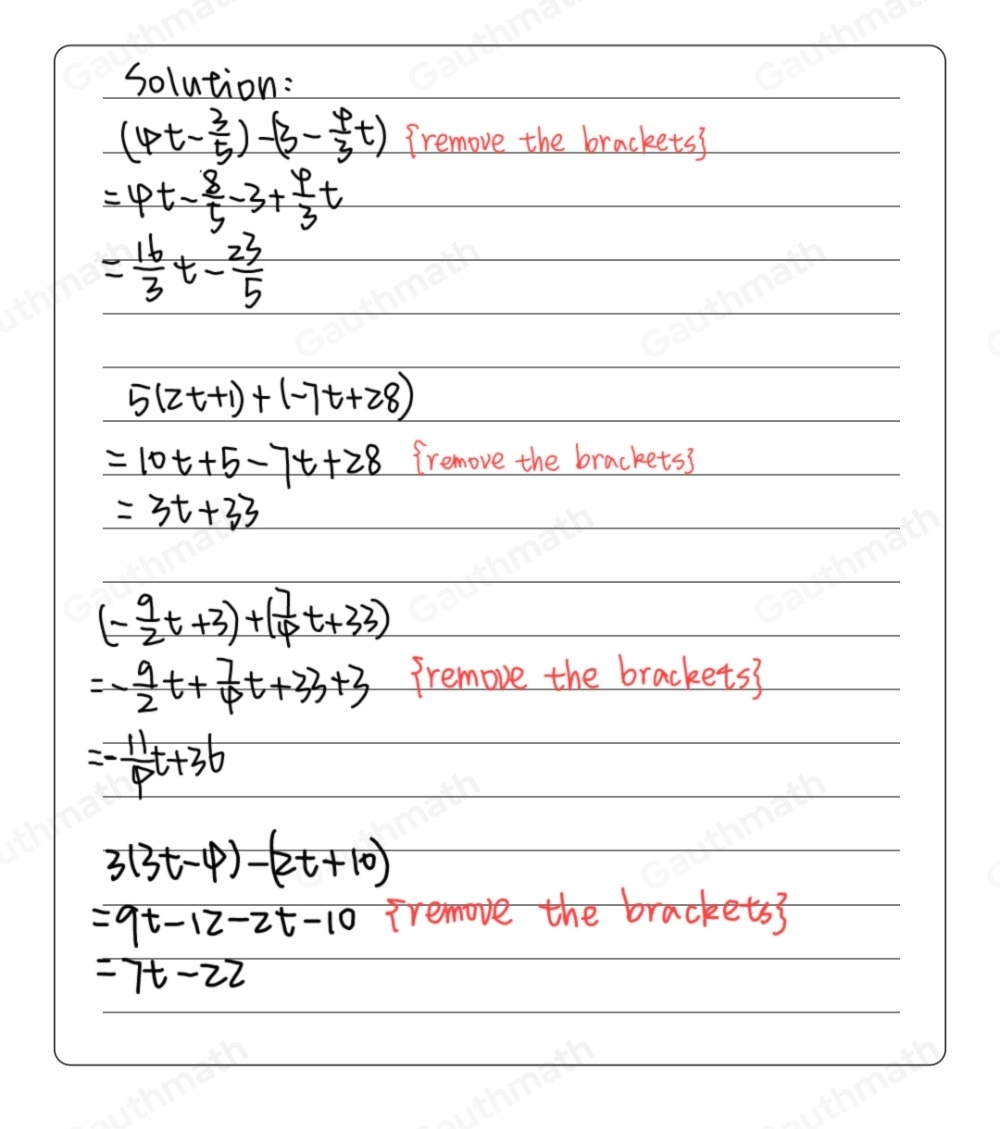 Solution:
(4t-3/5)-(3-4/3t) {remove the brackets}
=4t-8/5-3+4/3t
=16/3t-23/5
5(2t+1)+(-7t+28)
=10t+5-7t+28 {remove the brackets}
=3t+33
(-9/2t+3)+(7/4t+33)
=-9/2t+7/4t+33+3 {remove the brackets}
=-11/4t+36
3(3t-4)-(2t+10)
=9t-12-2t-10 {remove the brackets}
=7t-22